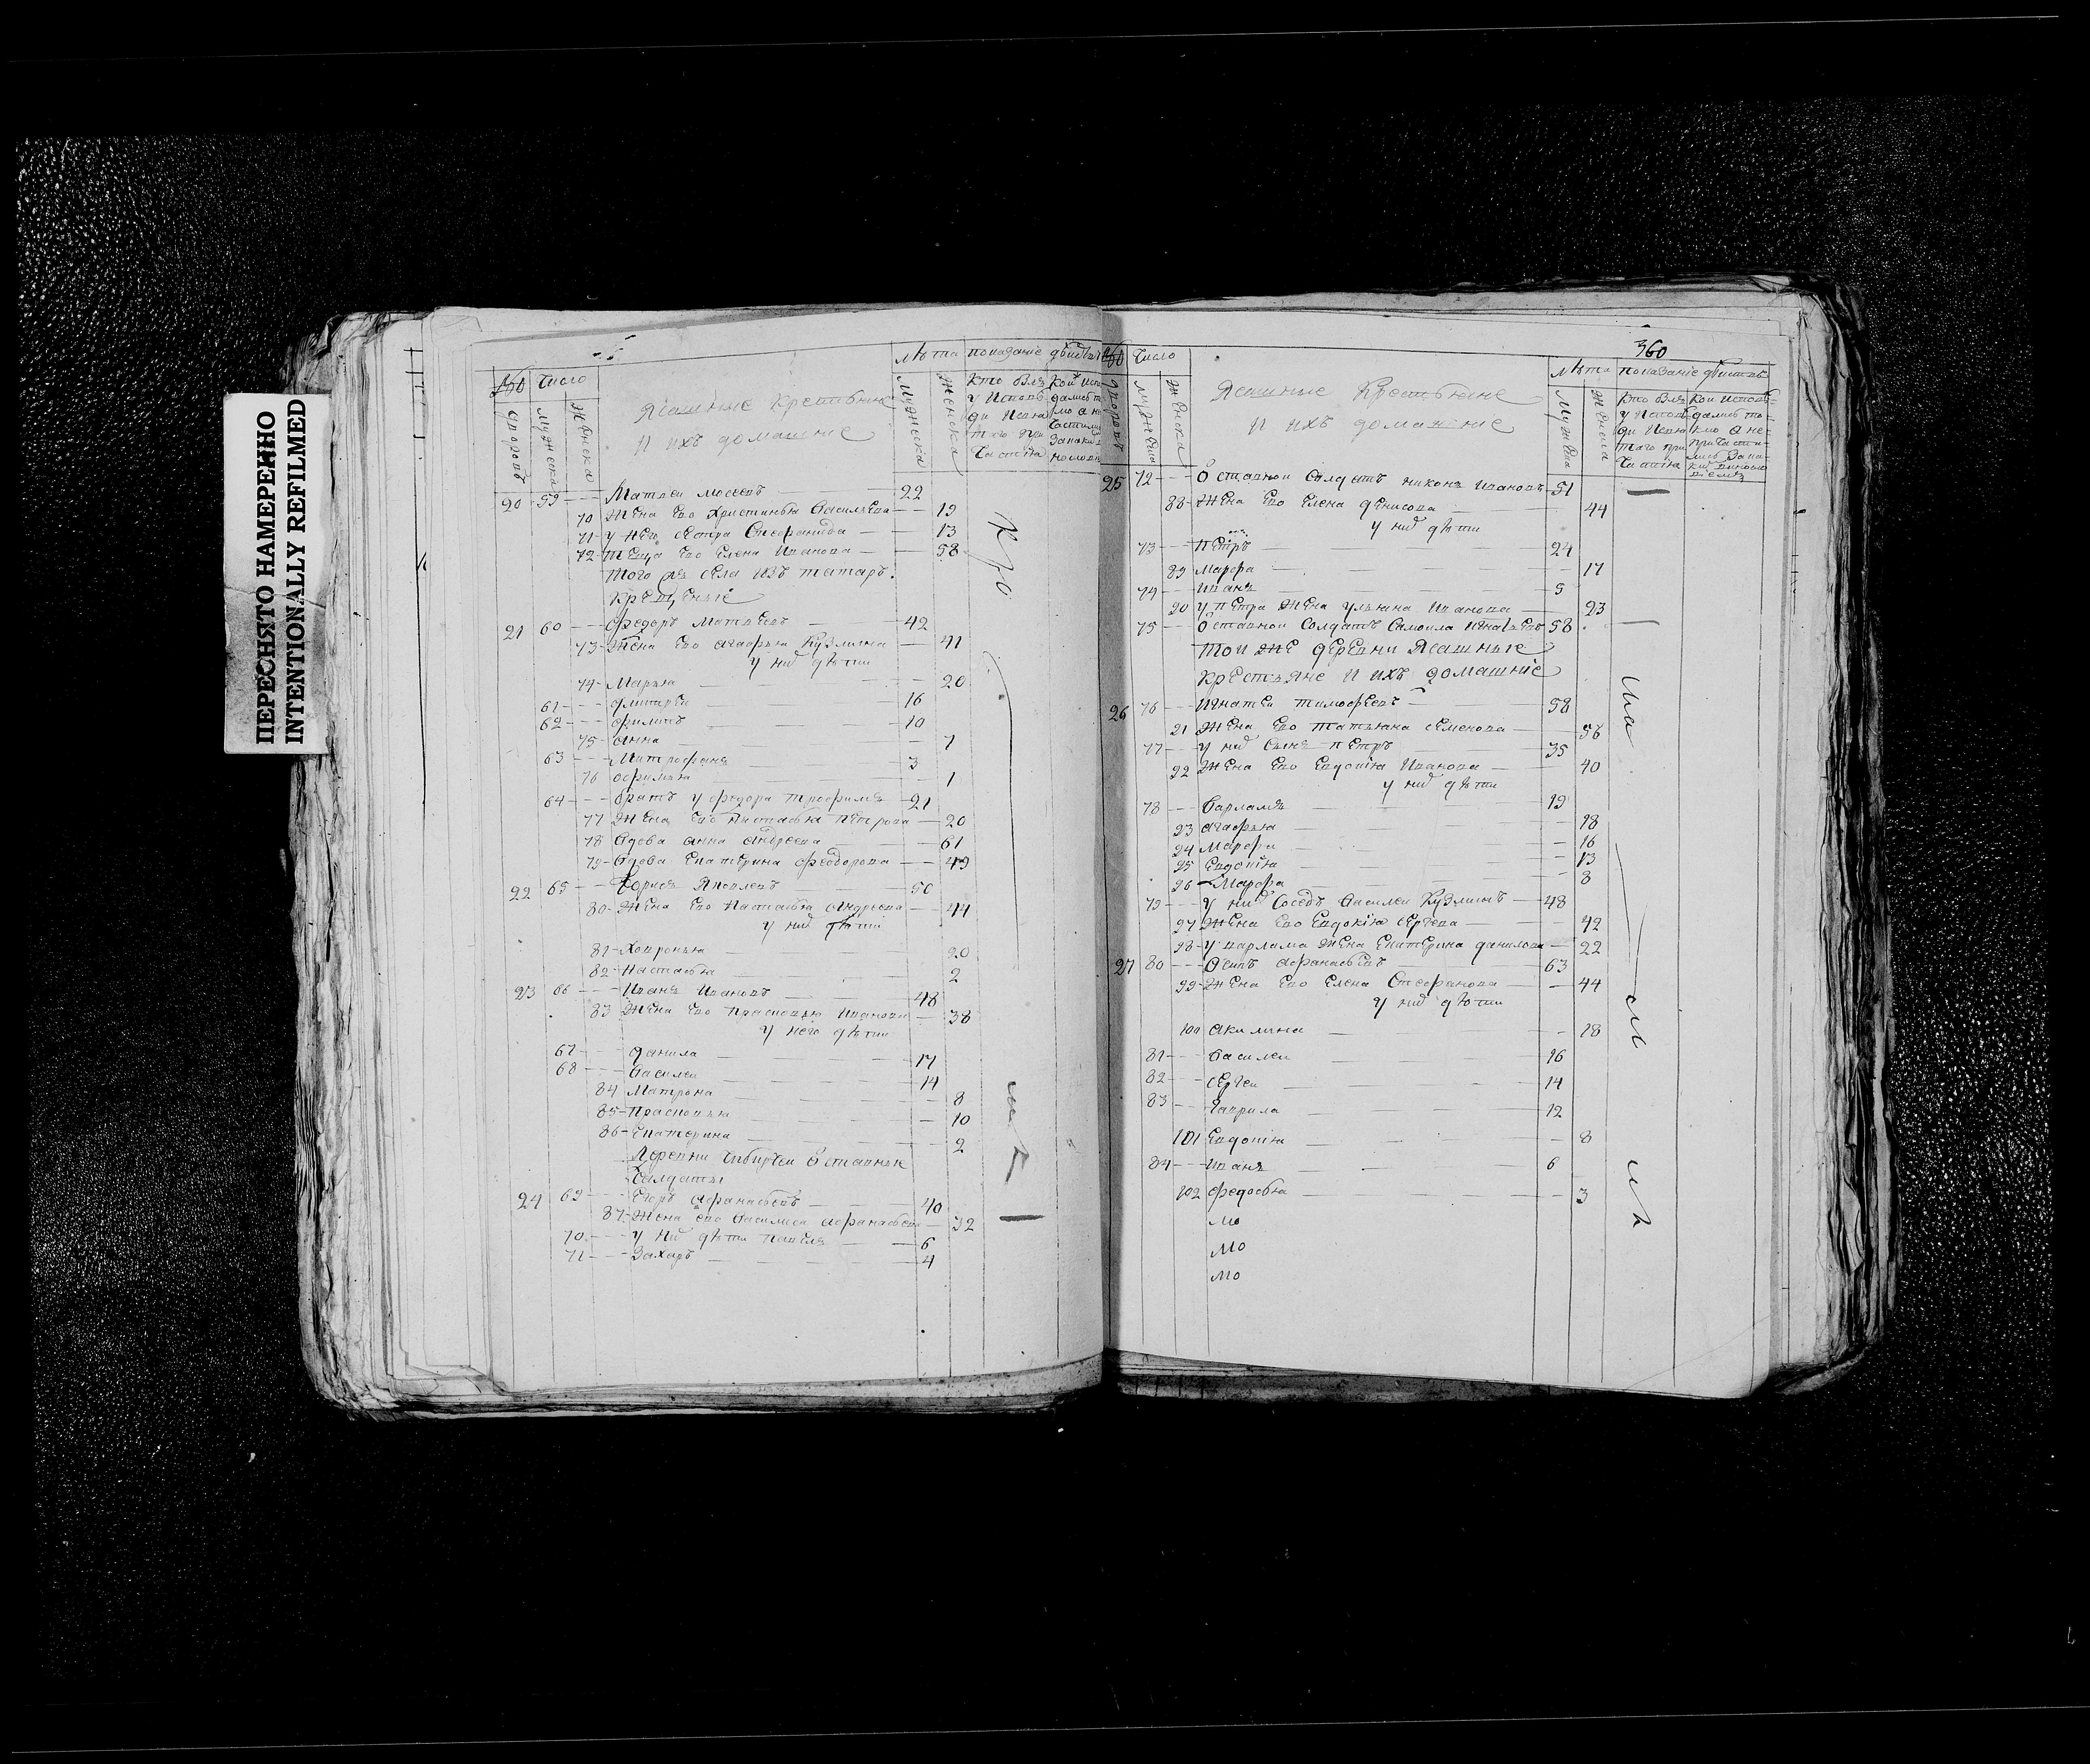 ПЕРЕСНЯТО НАМЕРЕННО
INTENTIONALLY REFILMED
число
Лѣта показание
Ясашные Крестьяне
И ихъ домашние
дворовъ
мужеска
женска
Мужеска
Женска
20 59 Матвеи 22
70 Жена Ево Христинья Василяева 19
71 у Него сестра Стефанида 13
72 теща Ево Елена Иванова 58
Того же села изъ татаръ
крещеные
21 60 Федоръ Матвеевъ 42
73 Жена Ево Агафья Кузмина 41
у них дѣти
74 Марья 20
61 Дмитреи 16
62 Филипъ 10
75 анна 7
63 Митрофанъ 3
76 1
64 братъ у федора трофимъ 21
77 Жена Ево Настасья Петрова 20
78 вдова анна андреева 61
79 вдова Екатерина Феодорова 49
22 65 Борисъ Яковлевъ 50
80 Жена Ево Настасья Андреева 44
у них дѣти
81 20
82 Настасья 2
23 66 Иванъ Ивановъ 48
83 Жена Ево Прасковья Иванова 38
у него дѣти
67 данила 17
68 Василеи 14
84 Матрона 8
85 Прасковья 10
86 Екатерина 2
Деревни отставные
Салдаты
24 69 Егоръ Афанасьевъ 40
87 Жена ево Василиса Афанасьева 32
70 у них дѣти Павелъ 6
71 Захаръ 4
360
число
Лѣта показание
Ясашные Крестьяне
И ихъ домашние
Мужеска
Женска
25 72 Отставнои Салдатъ никонъ Ивановъ 51
88 Жена Ево Елена денисова 44
у них дѣти
73 Петръ 24
89 Марфа 17
74 Иванъ 5
90 у петра Жена ульяна Иванова 23
75 Отставнои Солдатъ Самоила Игнатьевъ 58
Тои же деревни Ясашные
крестьяне и ихъ домашние
26 76 Игнатеи тимофеевъ 58
91 Жена Ево татьяна семенова 56
77 у них сынъ петръ 35
92 Жена Ево Евдокия Иванова 40
у них дѣти
78 Варламъ 19
93 агафья 18
94 Марфа 16
95 Евдокия 13
96 Марфа 8
79 у них соседъ Василеи Кузминъ 48
97 Жена Ево Евдокия сергева 42
98 у варлама Жена Екатерина данилова 22
27 80 Осипъ афанасьевъ 63
99 Жена Ево Елена Стефанова 44
у них дѣти
100 акилина 18
81 Василеи 16
82 сергеи 14
83 Гаврила 12
101 Евдокия 8
84 Иванъ 6
102 федосья 3